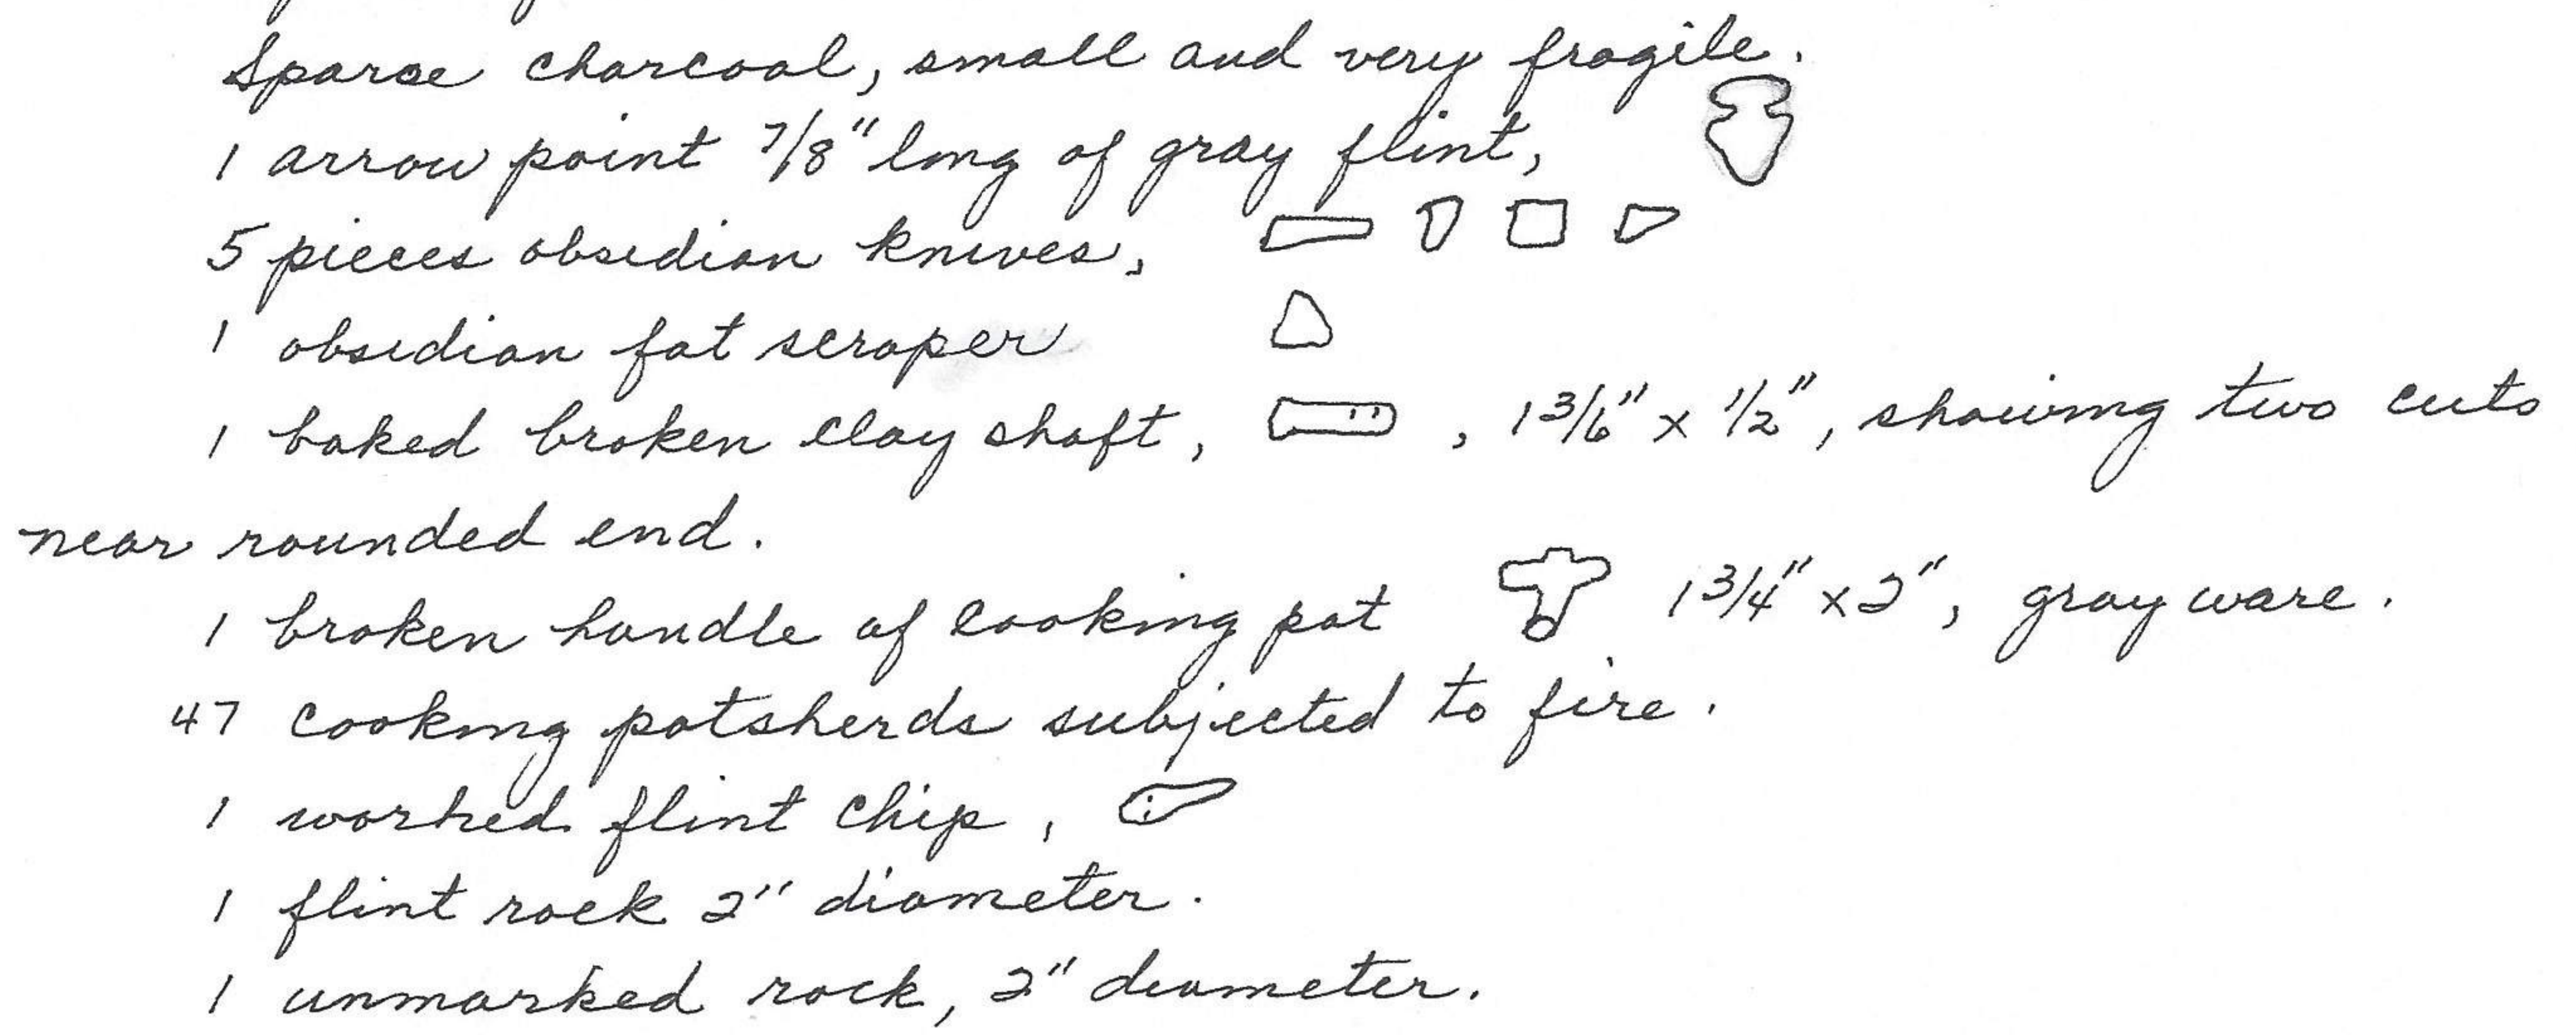 Sparse charcoal, small and very fragile.
1 arrow point 7/8" long of gray flint,
5 pieces obsidian knives,
1 obsidian fat scraper
1 baked broken clay shaft, , 1 3/6" x 1/2", showing two cuts
near rounded end.
1 broken handle of cooking pot 1 3/4" x 2", gray ware.
47 cooking potsherds subjected to fire.
1 worked flint chip,
1 flint rock 2" diameter.
1 unmarked rock, 2" diameter.